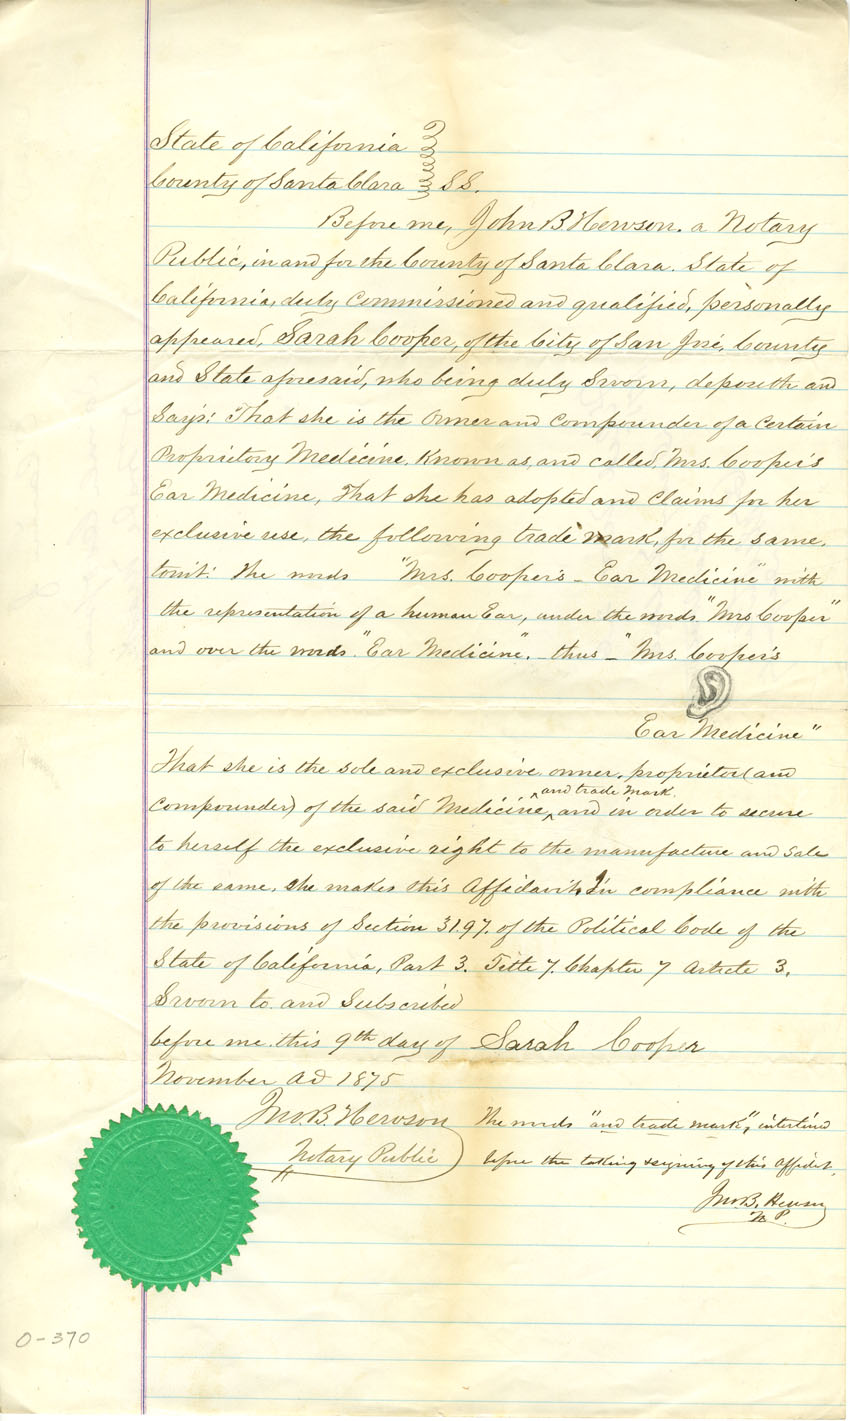 State of California
County of Santa Clara } SS.
Before me, John B Hewson. a Notary
Public, in and for the County of Santa Clara. State of
California, duly commissioned and qualified, personally
appeared, Sarah Cooper, of the City of San José, County
and State aforesaid, who being duly Sworn, deposeth and
Says: That she is the Owner and compounder of a certain
Proprietory Medicine, Known as, and called, Mrs. Cooper's
Ear Medicine, That she has adopted and claims for her
exclusive use, the following trade mark, for the same,
towit: The words "Mrs. Cooper's - Ear Medicine" with
the representation of a human Ear, under the words "Mrs Cooper"
and over the words "Ear Medicine". - thus - "Mrs. Cooper's
Ear Medicine"
That she is the sole and exclusive owner, proprietor (and
and trade mark.
compounder) of the said Medicine, and in order to secure
to herself the exclusive right to the manufacture and Sale
of the same, she makes this Affidavit, In compliance with
the provisions of Section 3197. of the Political Code of the
State of California, Part 3. Title 7. Chapter 7 Article 3.
Sworn to and Subscribed
before me this 9th day of Sarah Cooper
November AD 1875
Jno. B. Hewson
Notary Public
The words "and trade mark", interlined
before the taking & signing of this affidvt.
Jno. B. Hewson
N. P.
O-370